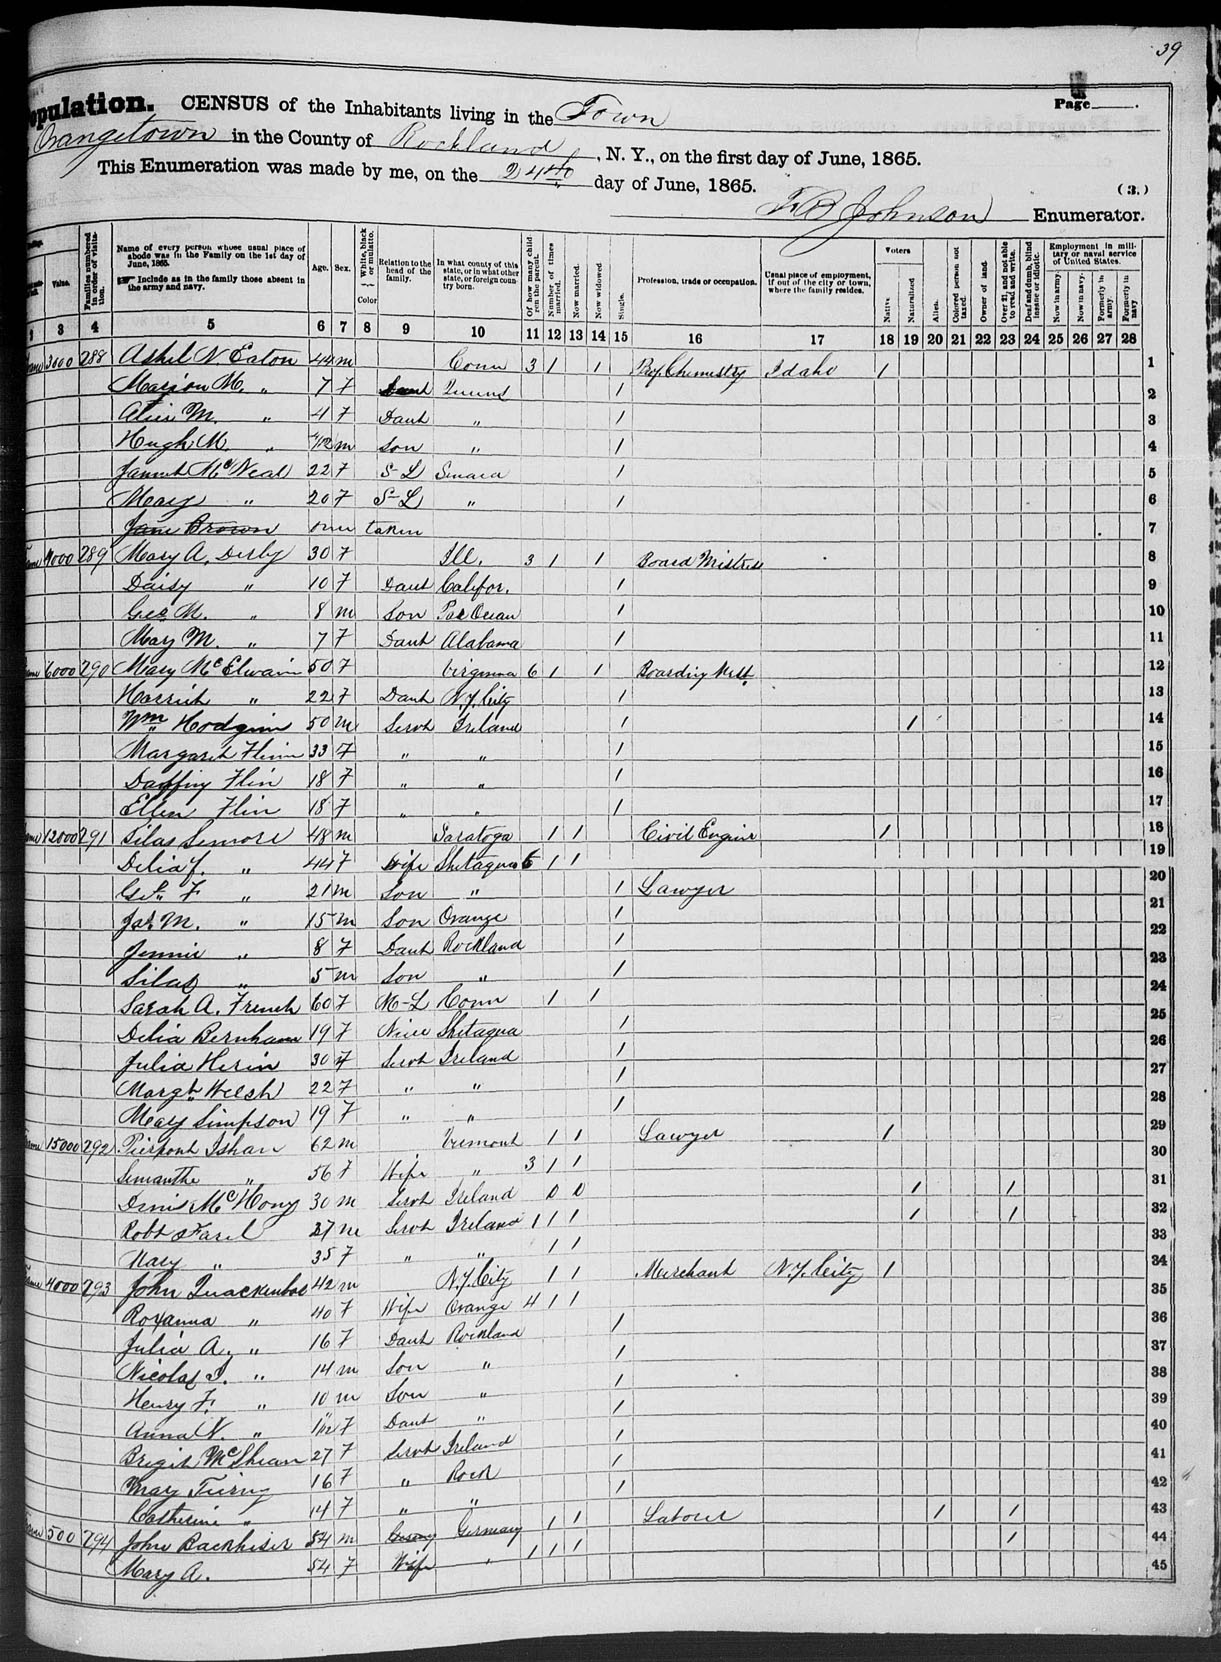 39
opulation. CENSUS of the Inhabitants living in the Town Page
Orangetown in the County of Rockland, N. Y., on the first day of June, 1865.
This Enumeration was made by me, on the 24th day of June, 1865.
(3.)
Johnson Enumerator.
Value. Families numbered in order of visitation. Name of every person whose usual place of abode was in the Family on the 1st day of June, 1865. Include as in the family those absent in the army and navy. Age. Sex. White, black or mulatto. Color Relation to the head of the family. In what county of this state, or in what other state, or foreign country born. Of how many children the parent. Number of times married. Now married. Now widowed. Single. Profession, trade or occupation. Usual place of employment, if out of the city or town, where the family resides. Voters Native Naturalized Aliens. Colored person not taxed. Owner of land. Over 21, and not able to read and write. Deaf and dumb, blind insane or idiotic. Employment in military or naval service of United States. Now in army. Now in navy. Formerly in army. Formerly in navy
3 4 5 6 7 8 9 10 11 12 13 14 15 16 17 18 19 20 21 22 23 24 25 26 27 28
3000 288 N Eaton 44 m Conn 3 1 1 Prof. Chemistry Idaho 1 1
Marion M. " 7 F Daut 1 2
M. " 4 F Daut " 1 3
Hugh M. " m Son " 1 4
McNeal 22 F S-L 1 5
Mary " 20 F S-L " 1 6
Jane Brown over taken 7
4000 289 Mary A. Derby 30 F Ill. 3 1 1 Board Mistress 8
Daisy " 10 F Daut Califor. 1 9
Geo. M. " 8 m Son Pac Ocean 1 10
Mary M. " 7 F Daut Alabama 1 11
6000 290 Mary McElwain 50 F Virginia 6 1 1 Boarding Mist. 12
" 22 F Daut N.Y. City 1 13
Wm Hodgins 50 m Servt Ireland 1 1 14
Margaret 33 F " " 1 15
Flin 18 F " " 1 16
Ellen Flin 18 F " " 1 17
12000 291 Silas 48 m Saratoga 1 1 Civil Engine 1 18
Delia J. " 44 F Wife 1 1 19
F " 21 m Son " 1 Lawyer 20
Jas M. " 15 m Son Orange 1 21
Jennie " 8 F Daut Rockland 1 22
Silas " 5 m Son " 1 23
Sarah A. French 60 F M-L Conn 1 1 24
Delia Bernham 19 F Niece 1 25
Julia 30 F Servt Ireland 1 26
Margt Welsh 22 F " " 1 27
Mary Simpson 19 F " " 1 28
15000 292 Pierpont Isham 62 m Vermont 1 1 Lawyer 1 29
Semantha " 56 F Wife " 3 1 1 30
30 m Servt Ireland 0 0 1 1 31
Robt 37 m Servt Ireland 1 1 1 1 1 32
Mary " 35 F " " 1 1 33
4000 293 John Quackenbos 42 m N.Y. City 1 1 Merchant N.Y. City 1 34
Roxanna " 40 F Wife Orange 4 1 1 35
Julia A. " 16 F Daut Rockland 1 36
Nicolas " 14 m Son " 1 37
Henry F. " 10 m Son " 1 38
Anna N. " F Daut " 1 39
Brigit McShean 27 F Servt Ireland 1 40
May 16 F " Rock 1 41
Catherine " 14 F " " 1 42
500 294 John 54 m Germany 1 1 Labour 1 1 43
Mary A. 54 F Wife " 1 1 1 1 44
45